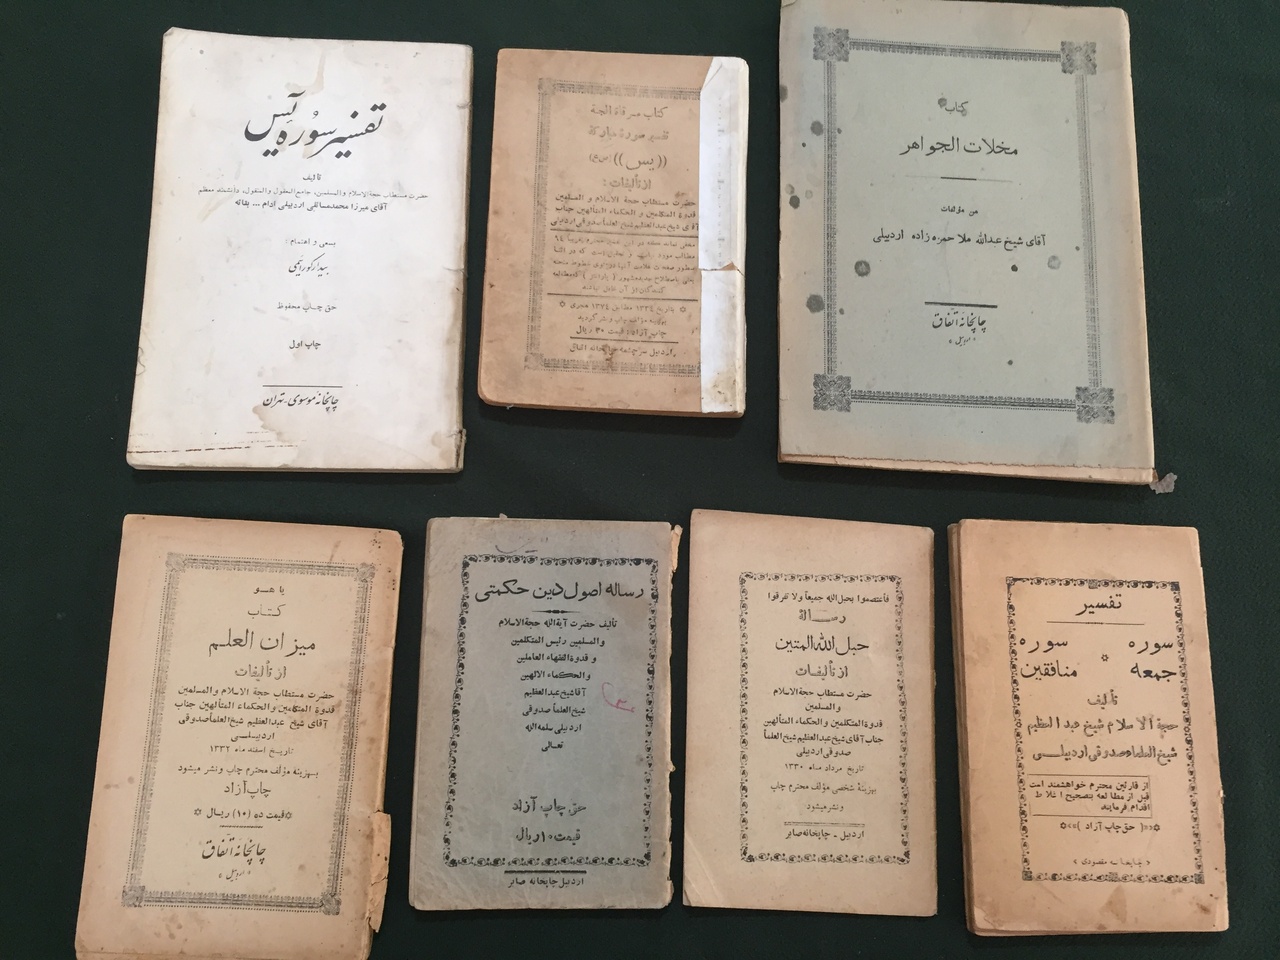 تفسیر سوره یس
تألیف
حضرت مستطاب حجة الاسلام والمسلمین، جامع المعقول والمنقول، دانشمند معظم
آقای میرزا محمد مسائلی اردبیلی ادام ... بقائه
بسعی و اهتمام :
حق چاپ محفوظ
چاپ اول
چاپخانه موسوی - تهران
کتاب مرقاة الجنة
تفسیر سوره مبارکه
((یس)) (ص ع)
از تألیفات :
حضرت مستطاب حجة الاسلام و المسلمین
قدوة المتکلمین و الحکماء المتألهین جناب
آقای شیخ عبدالعظیم شیخ العلماء صدوقی اردبیلی
بتاریخ ۱۳۳٤ مطابق ۱۳۷٤ هجری
چاپ آزاد : قیمت ۳۰ ریال
کتاب
مخلات الجواهر
من مؤلفات
آقای شیخ عبدالله ملا حمزه زاده اردبیلی
چاپخانه اتفاق
« اردبیل »
یا هو
کتاب
میزان العلم
از تألیفات
حضرت مستطاب حجة الاسلام و المسلمین
قدوة المتکلمین و الحکماء المتألهین جناب
آقای شیخ عبدالعظیم شیخ العلماء صدوقی
اردبیلی
تاریخ اسفند ماه ۱۳۳۲
بهزینه مؤلف محترم چاپ ونشر میشود
چاپ آزاد
قیمت ده (۱۰) ریال
چاپخانه اتفاق
« اردبیل »
رساله اصول دین حکمتی
تألیف حضرت آیة الله حجة الاسلام
والمسلمین رئیس المتکلمین
و قدوة الفقهاء العاملین
والحکماء الالهین
آقا شیخ عبدالعظیم
شیخ العلماء صدوقی
اردبیلی سلمه الله
تعالی
حق چاپ آزاد
قیمت ۱۰ ریال
اردبیل چاپخانه صابر
فاعتصموا بحبل الله جمیعاً ولا تفرقوا
رساله
حبل الله المتین
از تألیفات
حضرت مستطاب حجة الاسلام
والمسلمین
قدوة المتکلمین والحکماء المتألهین
جناب آقای شیخ عبدالعظیم شیخ العلماء
صدوقی اردبیلی
تاریخ مرداد ماه ۱۳۳۰
بهزینۀ شخصی مؤلف محترم چاپ
ونشر میشود
اردبیل - چاپخانه صابر
تفسیر
سوره جمعه * سوره منافقین
تألیف
حجة الاسلام شیخ عبدالعظیم
شیخ العلماء صدوقی اردبیلی
از قارئین محترم خواهشمند است
قبل از مطالعه بتصحیح اغلاط
اقدام فرمایند
( حق چاپ آزاد )